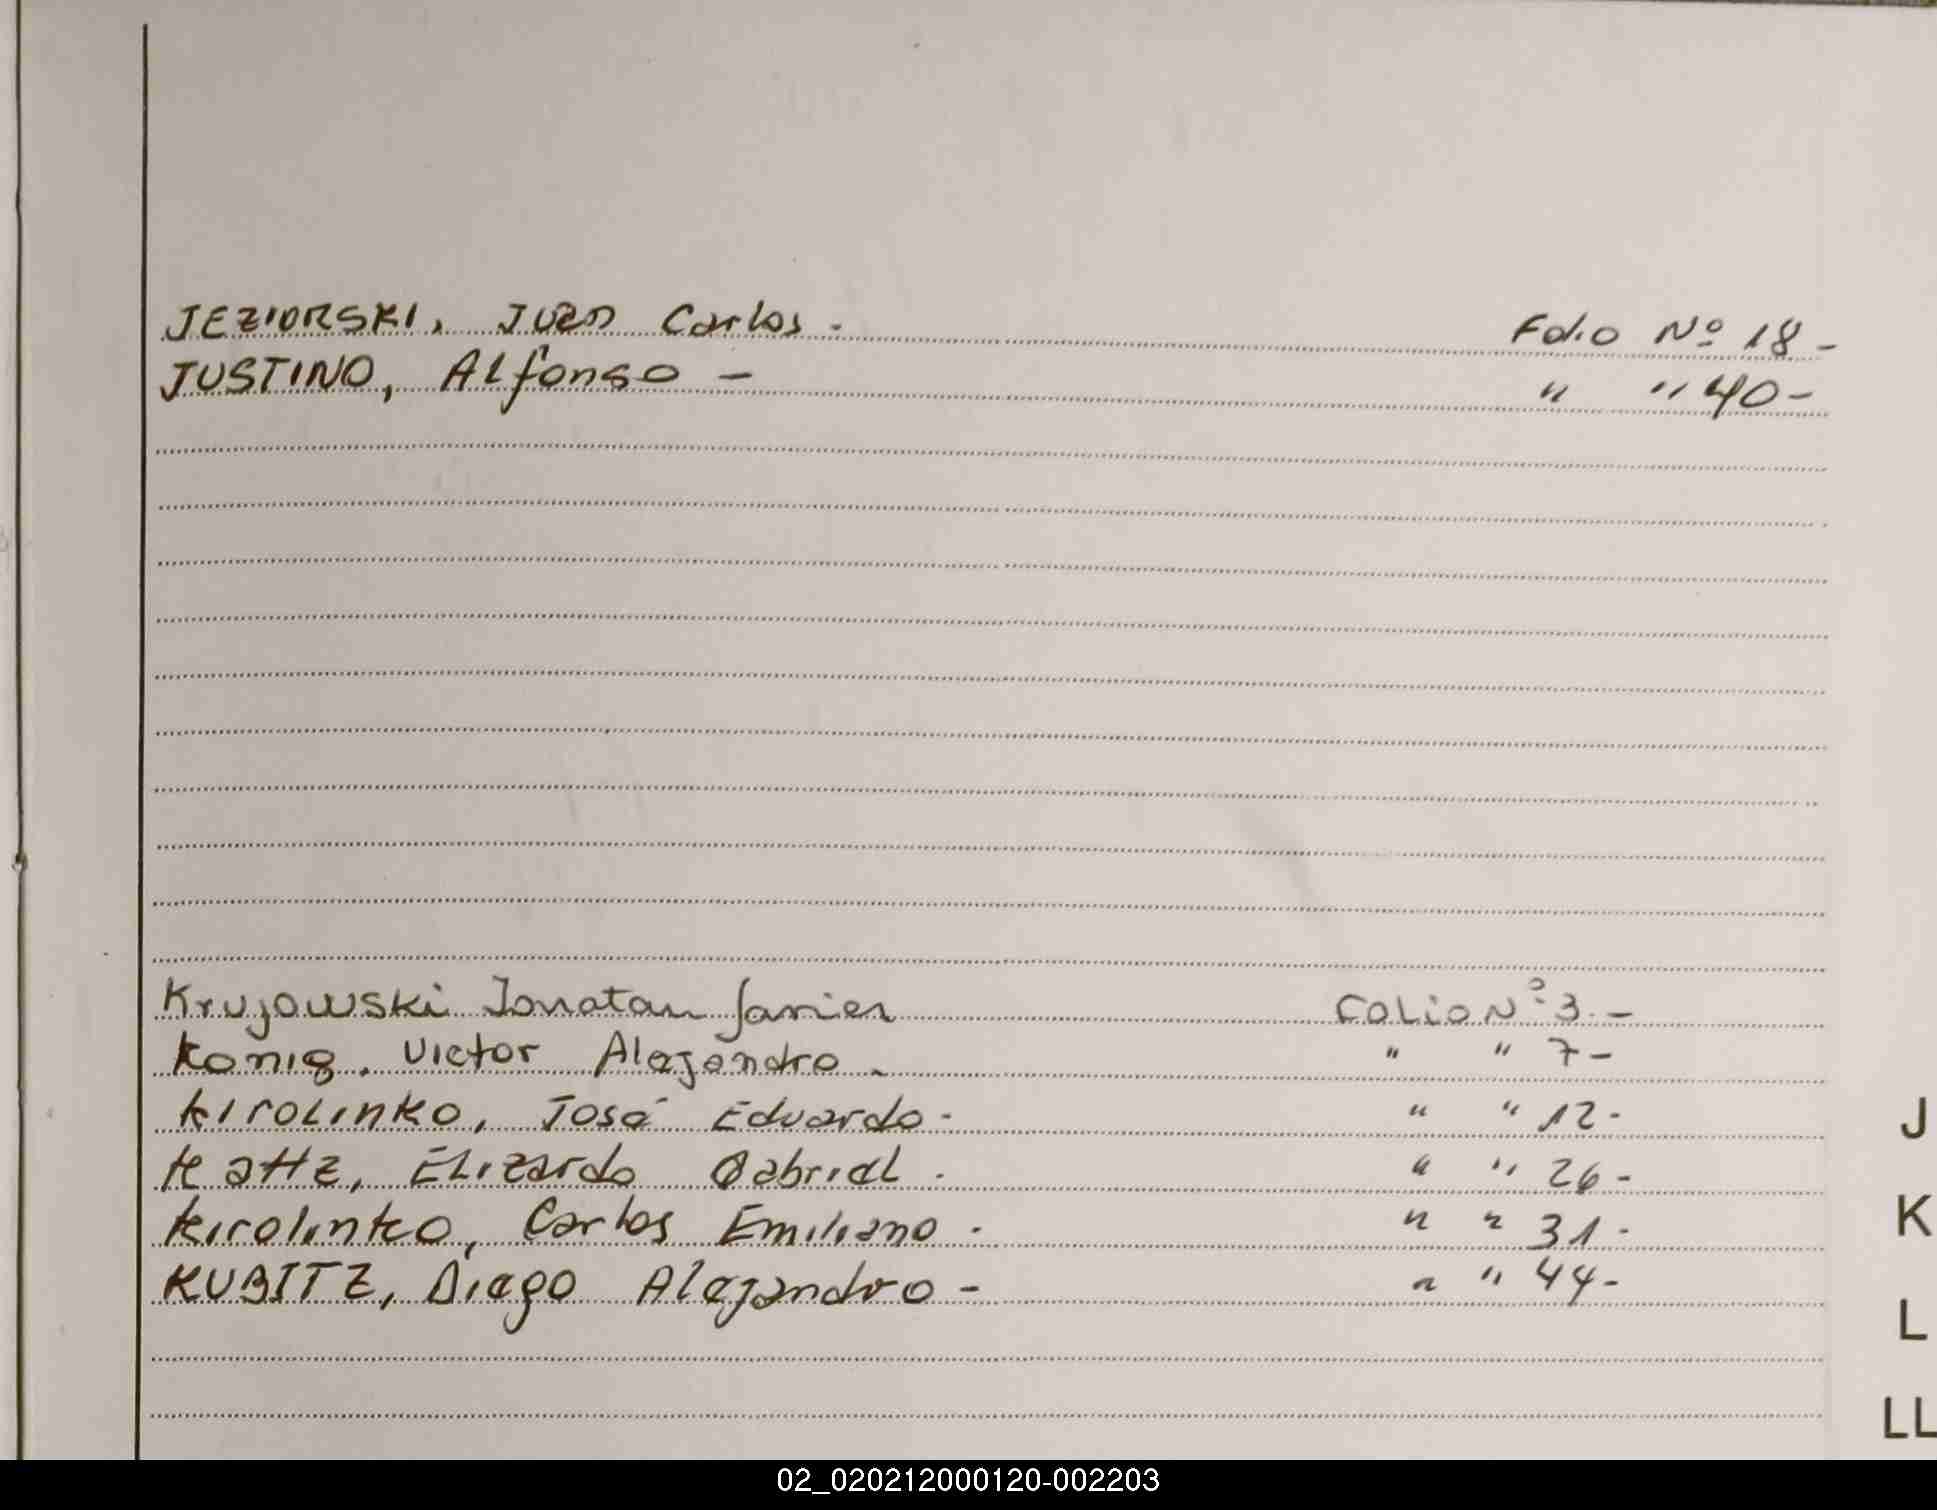 JEZIORSKI, Juan Carlos. Folio Nº 18 -
JUSTINO, Alfonso - " " 40 -
Krujowski Jonatan Javier Folio Nº 3. -
Konig. Victor Alejandro. " " 7 -
Kirolinko, José Eduardo - " " 12 -
Kattz, Elizardo Gabriel. " " 26 -
Kirolinko, Carlos Emiliano - " " 31 -
KUBITZ, Diego Alejandro - " " 44 -
J
K
L
LL
02_020212000120-002203